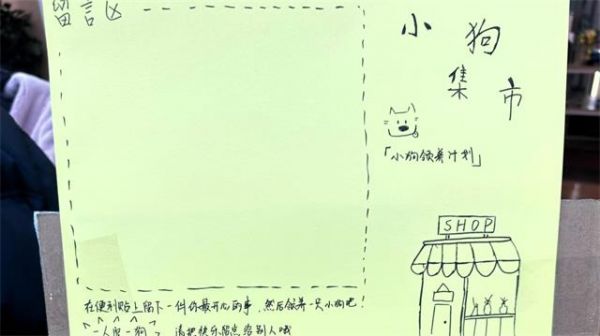 留言区
小狗
集市
「小狗领养计划」
SHOP
在便利贴上留下一件你最开心的事，然后领养一只小狗吧！
一人限一狗 请把快乐留点给别人哦